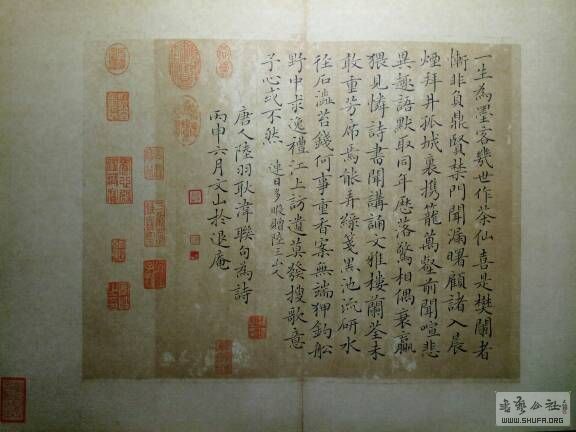 一生為墨客幾世作茶仙喜是樊闌者
慚非負鼎賢禁門聞漏曙顧諸入晨
煙拜井孤城裏携籠萬壑前聞喧悲
異趣語默取同年歷落驚相偶衰羸
猥見憐詩書聞講誦文雅樓蘭荃未
敢重芳席焉能弄綠箋黑池流研水
徑石溫苔錢何事重香案無端狎釣船
野中求逸禮江上訪遺莫發搜歌意
予心或不然 連日多暇贈陸三山人
唐人陸羽耿湋聯句為詩
丙申六月文山於退庵
書藝公社
WWW.SHUFA.ORG